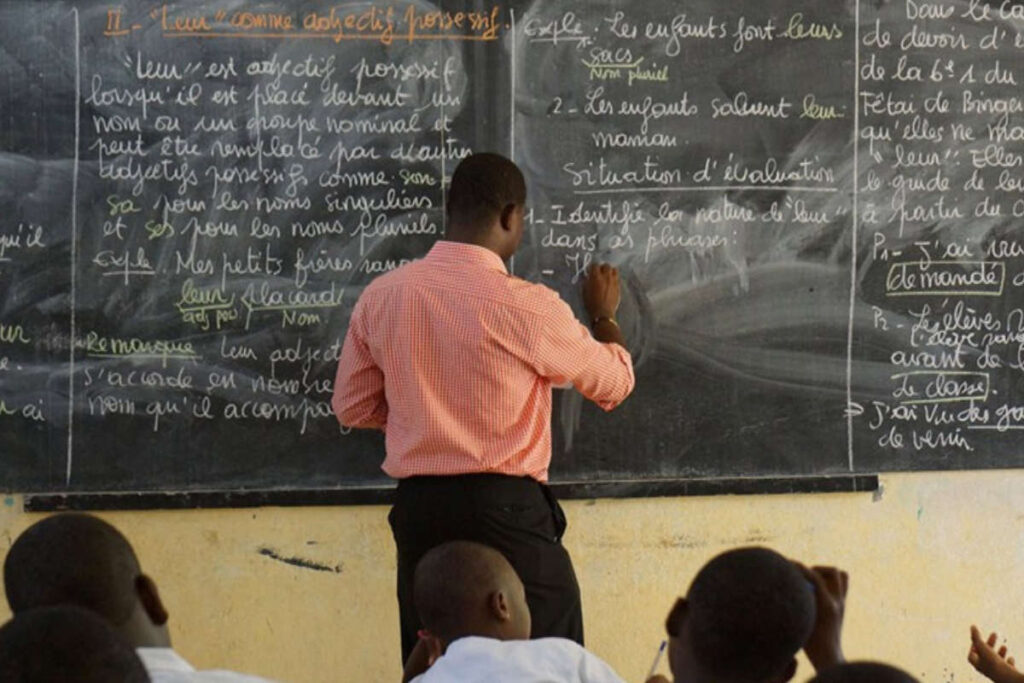 qu'il
ur
ai
II- "Leur" comme adjectif possessif.
"Leur" est adjectif possessif
lorsqu'il est placé devant un
nom ou un groupe nominal et
peut être remplacé par d'autres
adjectifs possessifs comme: son
sa pour les noms singuliers
et ses pour les noms pluriels.
Exple. Mes petits frères
leur placard
adj pos Nom
Remarque Leur adject
s'accorde en nombre
nom qu'il accompa
Exple: Les enfants font leurs
sacs
Nom pluriel
2- Les enfants saluent leur
maman.
Situation d'évaluation
1- Identifie la nature de "leur"
dans as phrases:
- Il
Dans le ca
de devoir d'é
de la 6e 1 du
Binger
qu'elles ne ma
"leur". Elles
le guide de leu
à partir du c
P1- J'ai
demandé
P2- Les élèves
avant de l
Le classe
⇒ J'ai vu des
de venir.